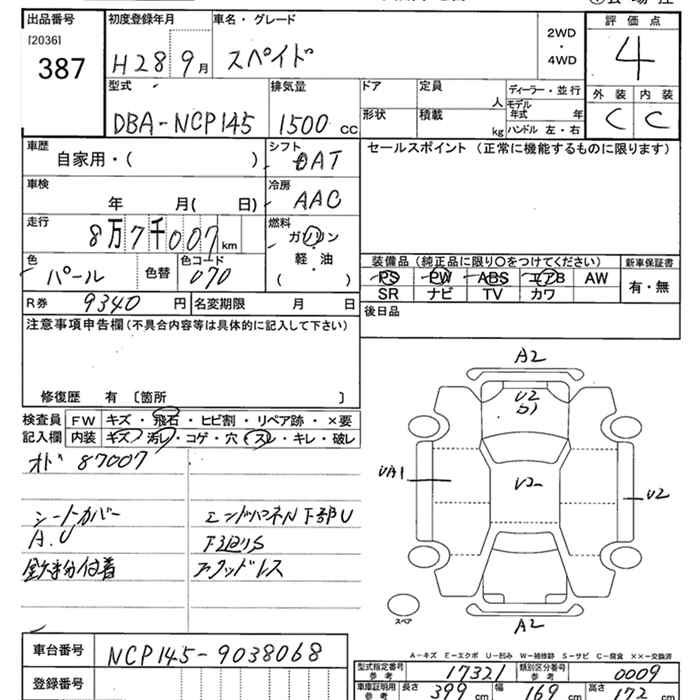 出品番号 初度登録年月 車名・グレード 2WD・4WD 評価点
[2036]
387 H28 9月 スペイド 4
外装 内装
C C
型式 排気量 ドア 定員 ディーラー・並行
DBA-NCP145 1500cc 人 モデル年式 年
形状 積載 kg ハンドル 左・右
車歴 シフト セールスポイント (正常に機能するものに限ります)
自家用・( ) DAT
車検 冷房
年 月( 日) AAC
走行 燃料
8万7千007km ガソリン
軽・油
( )
色 色替 色コード 装備品 (純正品に限り〇をつけてください) 新車保証書
パール 070 PS PW ABS エアB AW 有・無
R券 9340円 名変期限 月 日 SR ナビ TV カワ
後日品
注意事項申告欄(不具合内容等は具体的に記入して下さい)
修復歴 有 〔箇所 〕
検査員 FW キズ・飛石・ヒビ割・リペア跡・×要
記入欄 内装 キズ・汚レ・コゲ・穴・スレ・キレ・破レ
オド 87007
シートカバー エンドパネル下部U
A.U 下廻りS
鉄粉付着 フックッドレス
A2
U2
S1
UA1 U2 U2
スペア
A2
A-キズ E-エクボ U-凹み W-補修跡 S-サビ C-腐食 ××-交換済
車台番号 NCP145-9038068
型式指定番号 参考 17321 類別区分番号 参考 0009
登録番号
車庫証明用 参考 長さ 399cm 幅 169cm 高さ 172cm